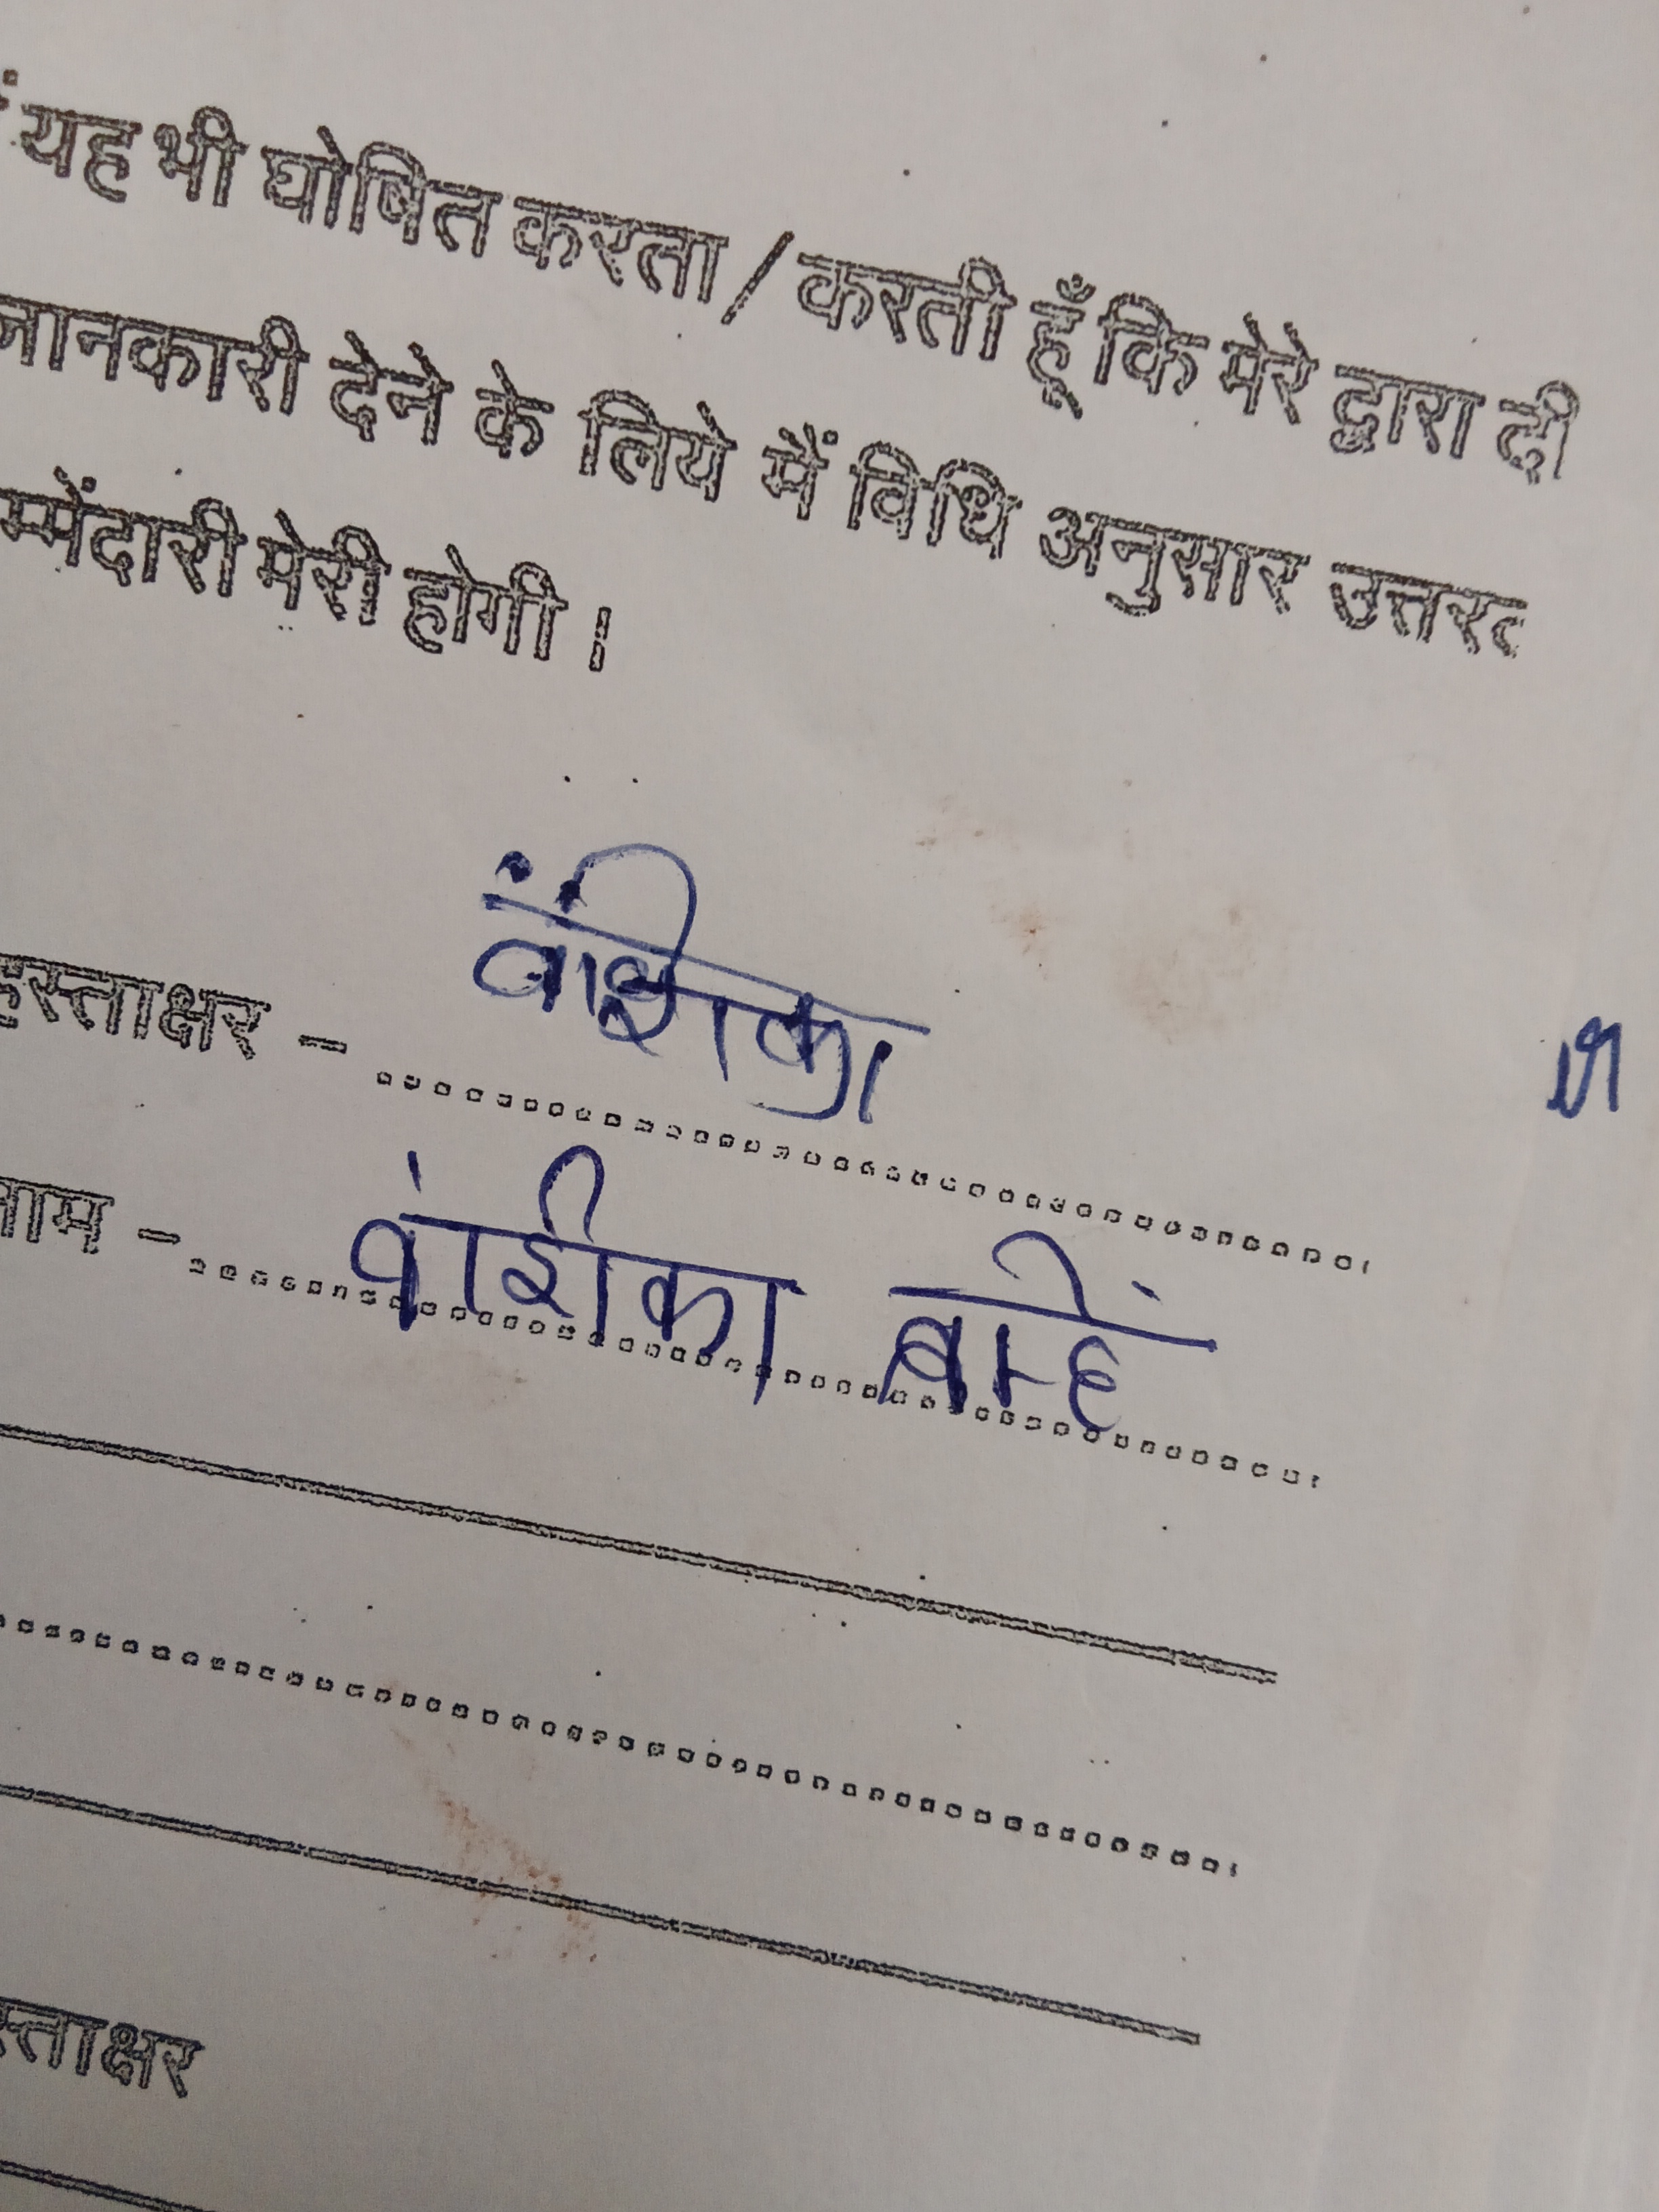 यह भी घोषित करता / करती हूँ कि मेरे द्वारा दी
जानकारी देने के लिये मैं विधि अनुसार उत्तर
म्मेंदारी मेरी होगी ।
हस्ताक्षर - वंशिका
नाम - वंशिका
स्ताक्षर